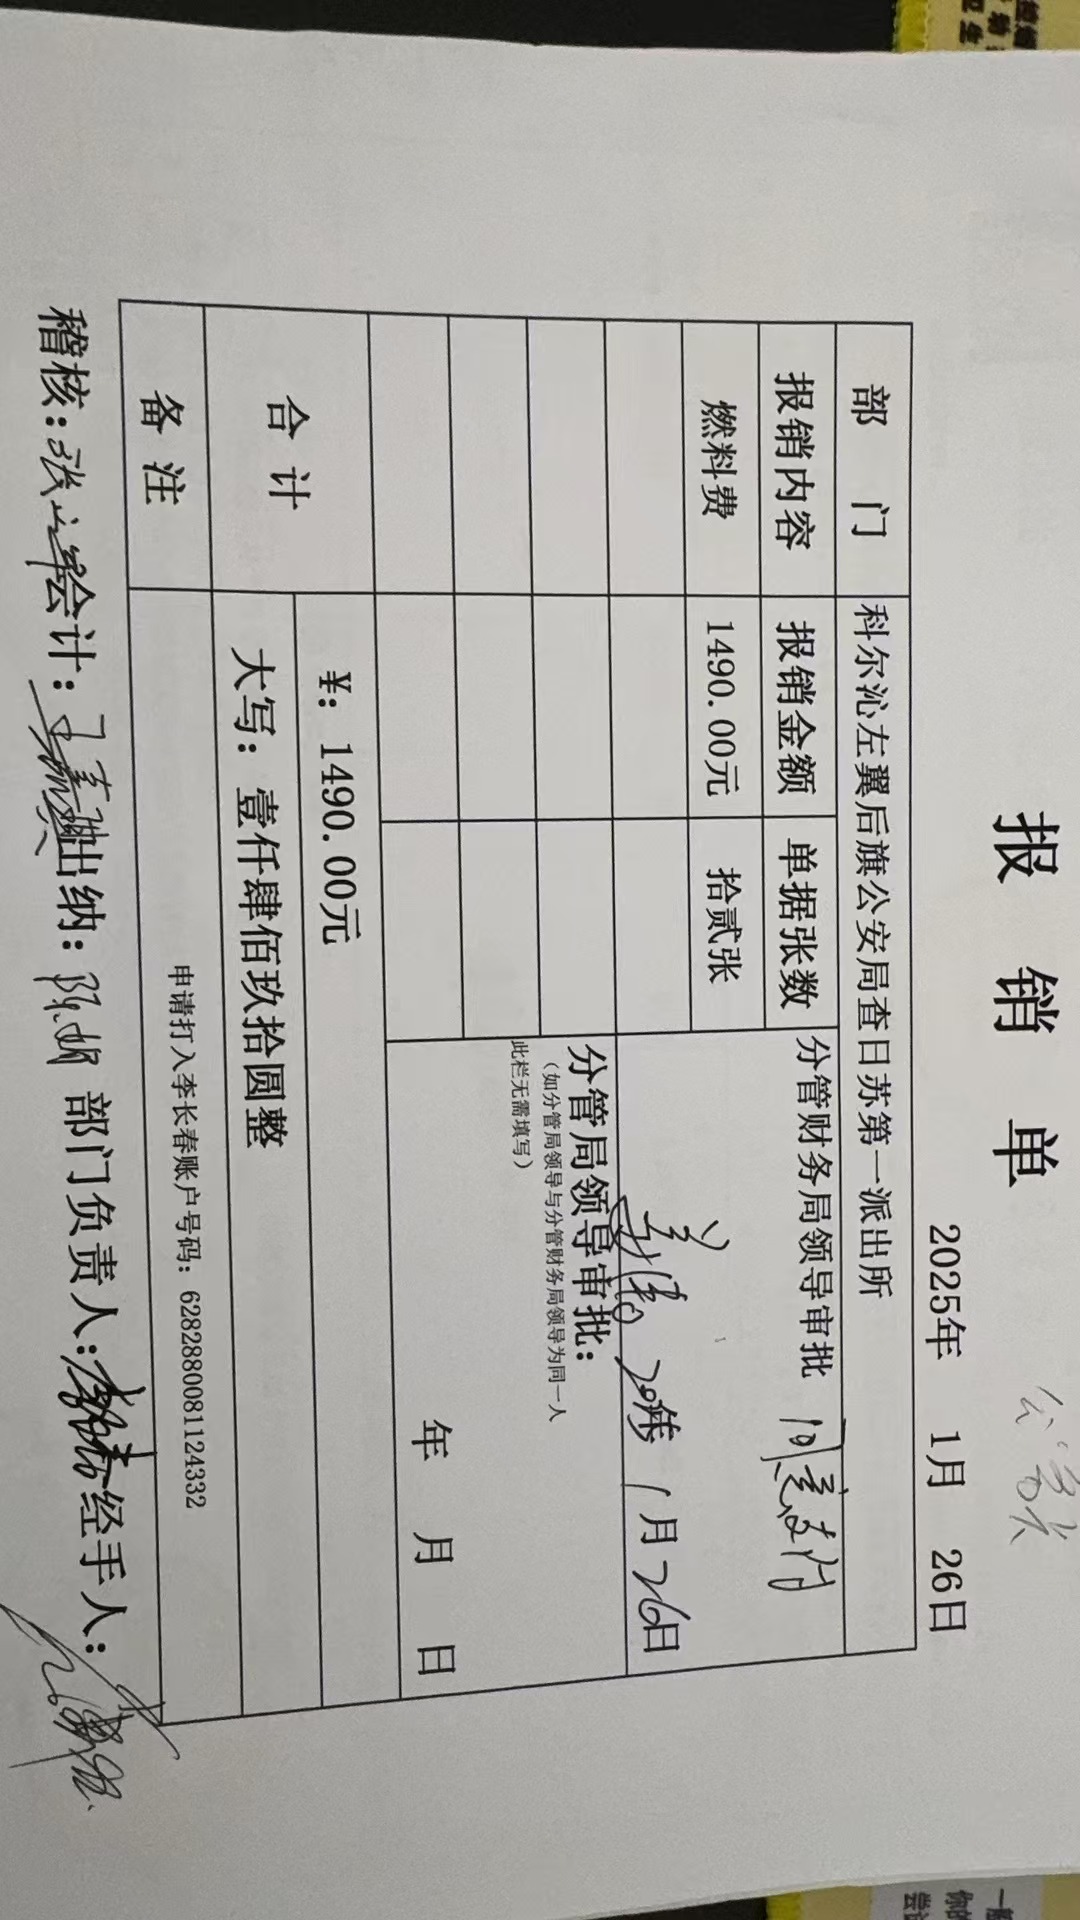 报 销 单
2025年 1月 26日
部 门 科尔沁左翼后旗公安局查日苏第一派出所
报销内容 报销金额 单据张数 分管财务局领导审批
燃料费 1490.00元 拾贰张
1月26日
分管局领导审批：
（如分管局领导与分管财务局领导为同一人
此栏无需填写）
年 月 日
合 计 ¥：1490.00元
大写：壹仟肆佰玖拾圆整
备 注 申请打入李长春账户号码：6282880081124332
稽核： 会计： 出纳： 部门负责人： 经手人：